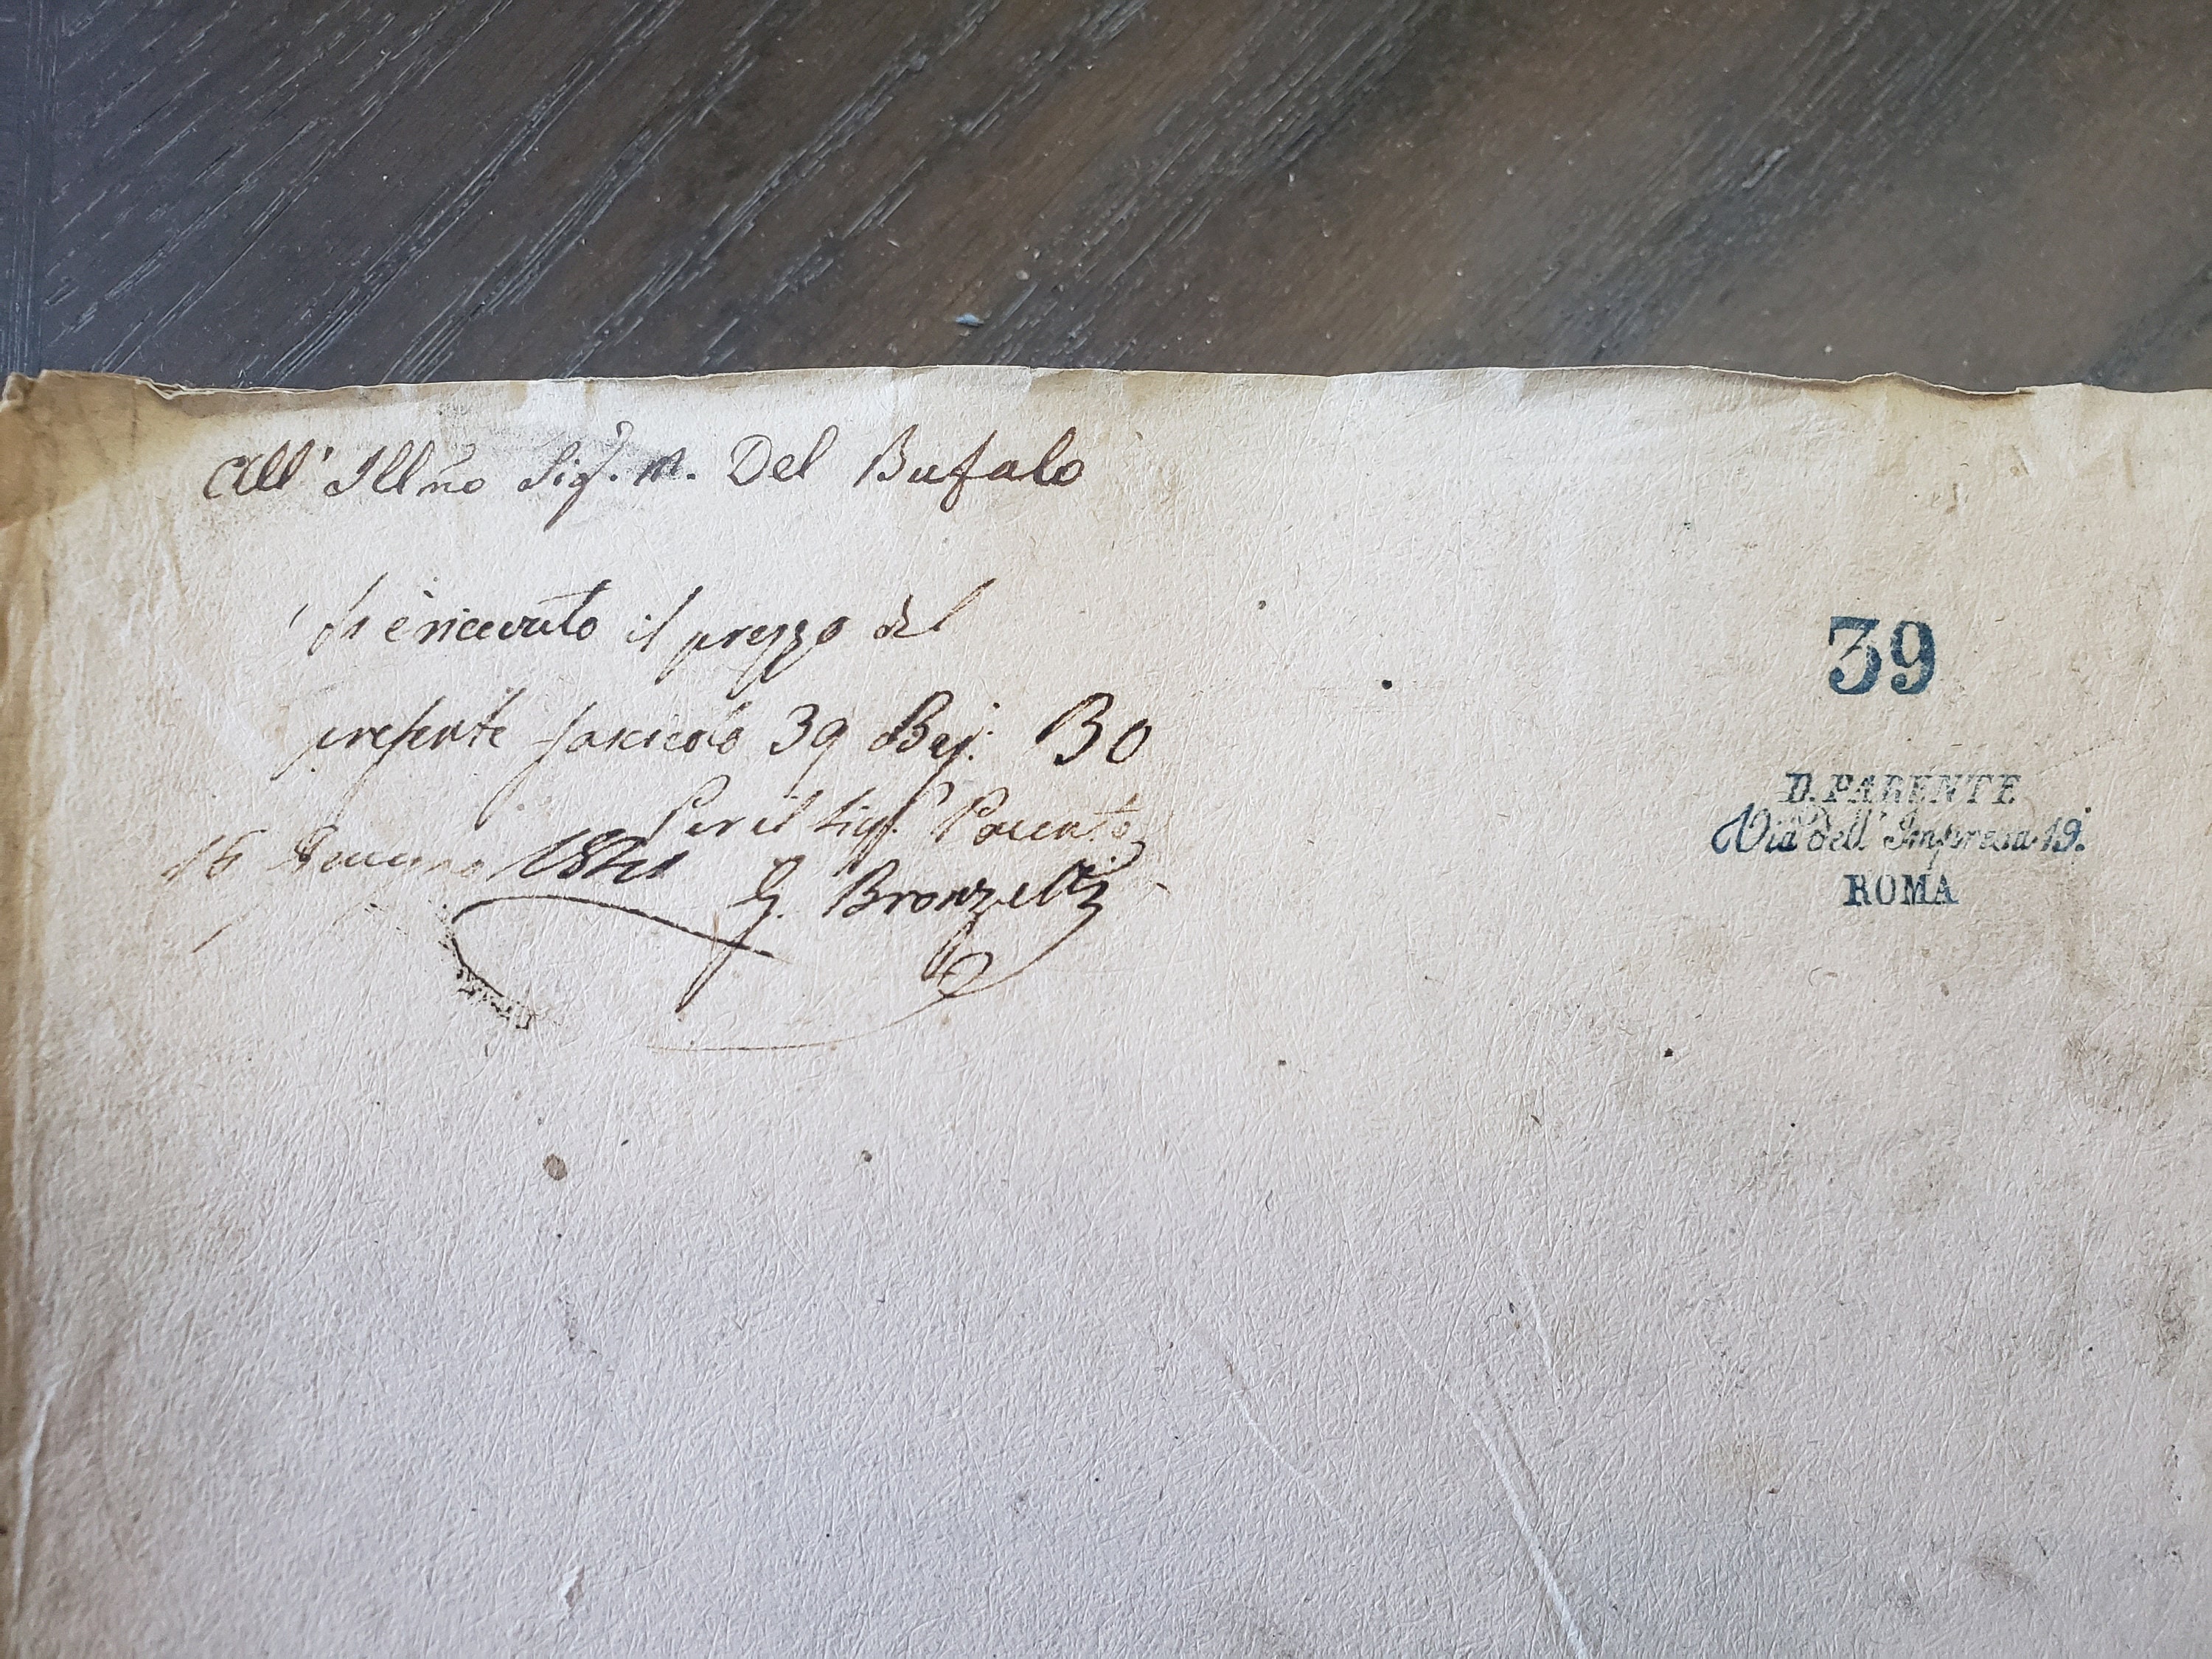 All' Illmo Sigr. M. Del Bufalo
Si è ricevuto il prezzo del
presente fascicolo 39 Baj: 30
Per il Sigr. Parente
16 Giugno 1841
G. Bronzetti
39
D. PARENTE
Via dell' Impresa 19.
ROMA